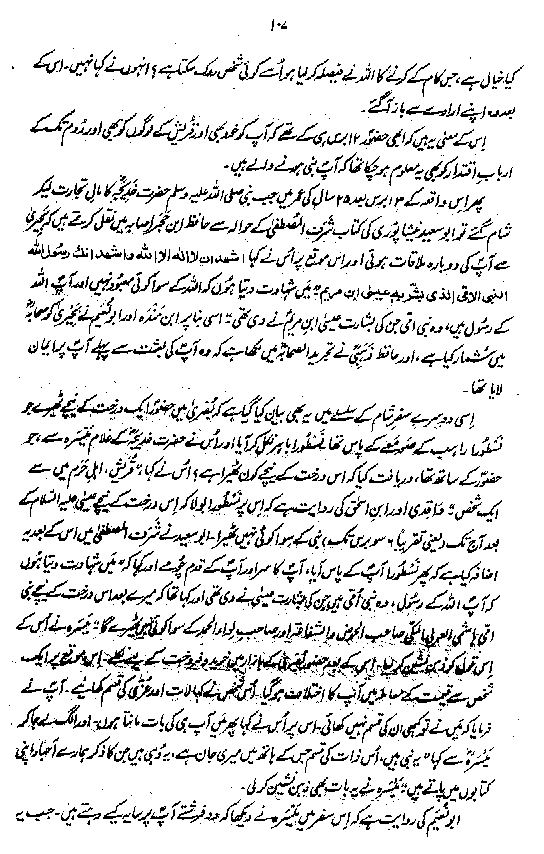 ۱۰۷
کیا خیال ہے، جس کام کے کرنے کا اللہ نے فیصلہ کر لیا ہو اُسے کوئی شخص روک سکتا ہے؟ انہوں نے کہا نہیں۔ اس کے
بعد وہ اپنے ارادے سے باز آ گئے۔
اِس کے معنی یہ ہیں کہ ابھی حضورؐ ۱۲ برس ہی کے تھے کہ آپ کو خود بھی اور قریش کے لوگوں کو بھی اور رُوم تک کے
اربابِ اقتدار کو بھی یہ معلوم ہو چکا تھا کہ آپ نبی ہونے والے ہیں۔
پھر اِس واقعہ کے ۱۳ برس بعد ۲۵ سال کی عمر میں جب نبی صلی اللہ علیہ وسلم حضرت خدیجہؓ کا مالِ تجارت لیکر
شام گئے تو ابو سعید نیشاپوری کی کتاب شرف المصطفٰی کے حوالہ سے حافظ ابن حجر اصابہ میں نقل کرتے ہیں کہ بُحیریٰ
سے آپ کی دوبارہ ملاقات ہوئی اور اس موقع پر اُس نے کہا اشھد ان لا الٰہ الا اللہ واشھد انك رسول اللہ
النبی الامّی الذی بشّر بہ عیسیٰ ابن مریم "میں شہادت دیتا ہوں کہ اللہ کے سوا کوئی معبود نہیں اور آپ اللہ
کے رسول ہیں، وہ نبی اُمّی جن کی بشارت عیسیٰ ابن مریمؑ نے دی تھی" اسی بنا پر ابن مندہ اور ابو نُعیم نے بُحیریٰ کو صحابہؓ
میں شمار کیا ہے، اور حافظ ذہبیؒ نے تجرید الصحابہ میں لکھا ہے کہ وہ آپ کی بعثت سے پہلے آپ پر ایمان
لایا تھا۔
اِسی دوسرے سفرِ شام کے سلسلے میں یہ بھی بیان کیا گیا ہے کہ بُصریٰ میں حضورؐ ایک درخت کے نیچے ٹھیرے جو
نسطورا راہب کے صومعے کے پاس تھا۔ نسطورا باہر نکل کر آیا اور اُس نے حضرت خدیجہؓ کے غلام مَیسَرہ سے، جو
حضورؐ کے ساتھ تھا، دریافت کیا کہ اس درخت کے نیچے کون ٹھیرا ہے؟ اُس نے کہا "قریش، اہلِ حرم میں سے
ایک شخص" واقدی اور ابن اسحٰق کی روایت ہے کہ اِس پر نسطورا بولا کہ اِس درخت کے نیچے عیسیٰ علیہ السلام کے
بعد آج تک (یعنی تقریباً ۶ سو برس تک) نبی کے سوا کوئی نہیں ٹھیرا۔ ابو سعید نے شرف المصطفٰی میں اس کے بعد یہ
اضافہ کیا ہے کہ پھر نسطورا آپ کے پاس آیا، آپ کا سر اور آپ کے قدم چُومے اور کہا کہ "مَیں شہادت دیتا ہوں
کہ آپ اللہ کے رسول، وہ نبی اُمّی ہیں جن کی بشارت عیسیٰ نے دی تھی اور کہا تھا کہ میرے بعد اس درخت کے نیچے نبی
اُمّی ہاشمی العربی المکی صاحب الحوض والشفاعۃ اور صاحب لواء الحمد کے سوا کوئی نہیں ٹھیرے گا" مَیسَرہ نے اُس کے
اِس قول کو ذہن نشین کر لیا۔ اس کے بعد حضورؐ بُصریٰ کے بازار میں خرید و فروخت کے لیے نکلے۔ اس موقع پر ایک
شخص سے قیمت کے معاملہ میں آپ کا اختلاف ہو گیا۔ اُس شخص نے کہا لات اور عُزّیٰ کی قسم کھائیے۔ آپ نے
فرمایا کہ میں نے تو کبھی ان کی قسم نہیں کھائی۔ اس پر اُس نے کہا پھر میں آپ ہی کی بات مانتا ہوں۔ اور الگ لے جا کر
مَیسَرہ سے کہا "یہ نبی ہیں، اُس ذات کی قسم جس کے ہاتھ میں میری جان ہے، یہ وہی ہیں جن کا ذکر ہمارے احبار اپنی
کتابوں میں پاتے ہیں" مَیسَرہ نے یہ بات بھی ذہن نشین کر لی۔
ابو نُعیم کی روایت ہے کہ اِس سفر میں مَیسَرہ نے دیکھا کہ دو فرشتے آپ پر سایہ کیے رہتے ہیں۔ جب یہ